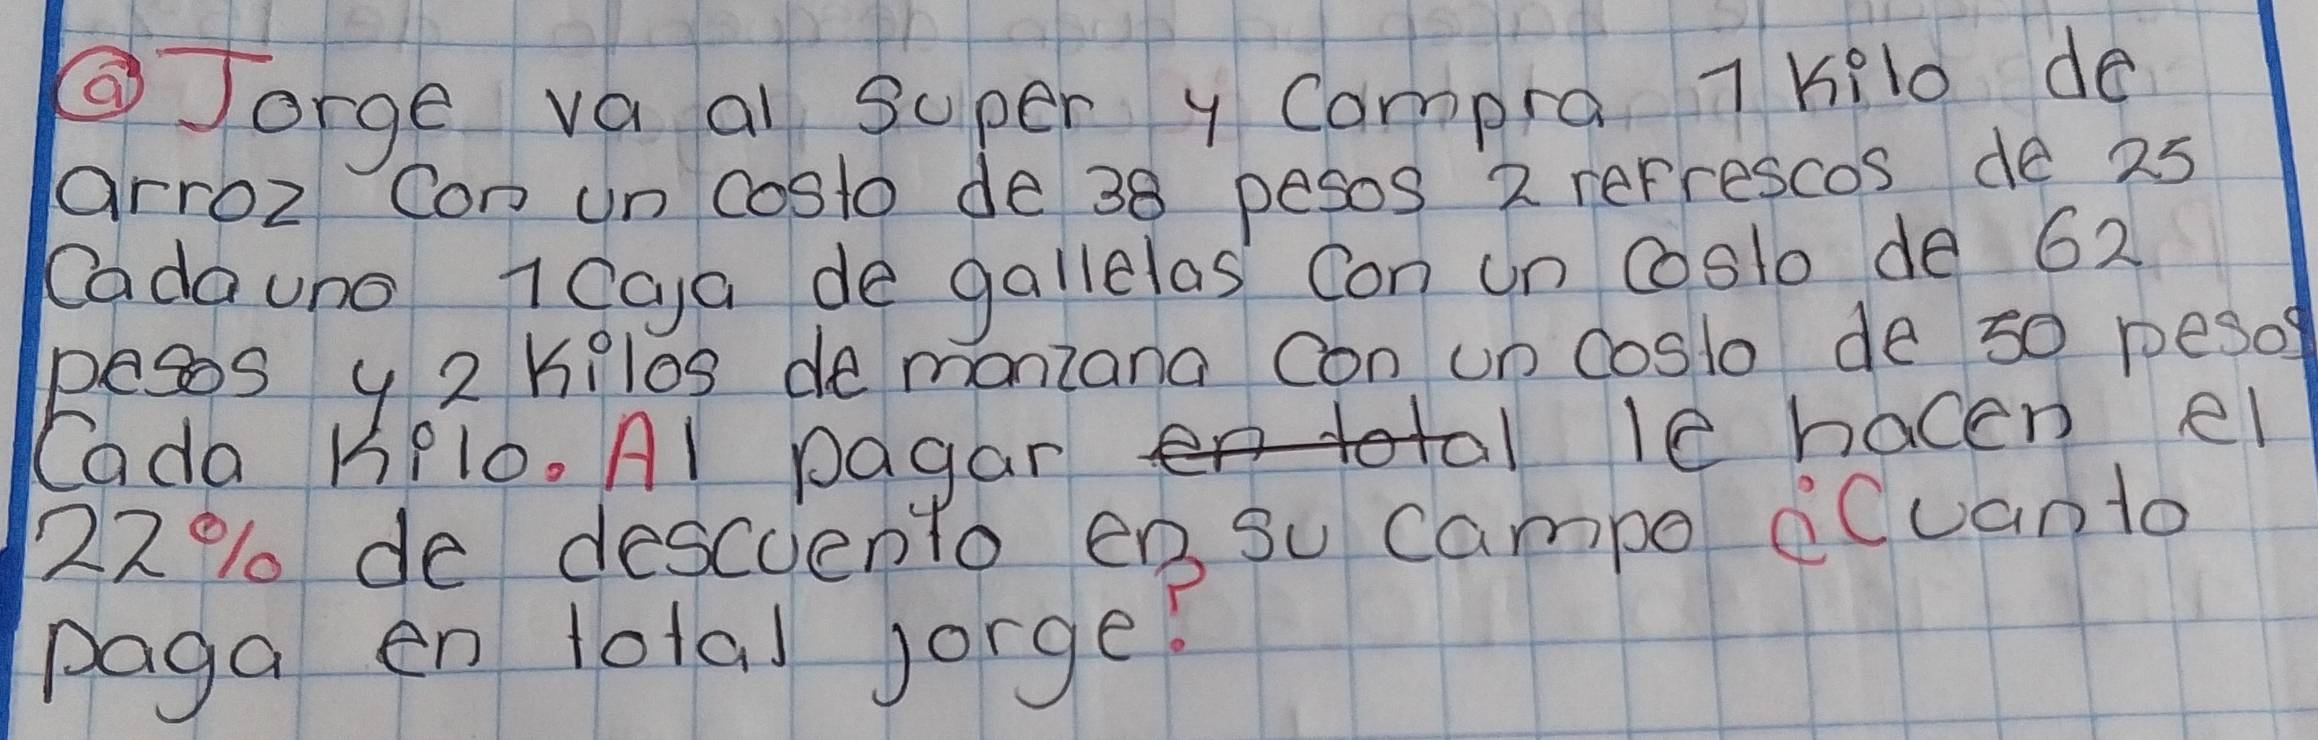 a Jorge va al super y Compra 1 Kilo de
arroz Con un costo de 38 pesos 2 refrescos de 25
Cada uno 1 Caja de galletas Con un Costo de 62
pesos y 2 Kilos de manzana Con un Costo de 50 pesos
Cada Kilo. Al pagar en total le hacen el
22% de descuento en su campo ¿Cuanto
paga en total jorge?